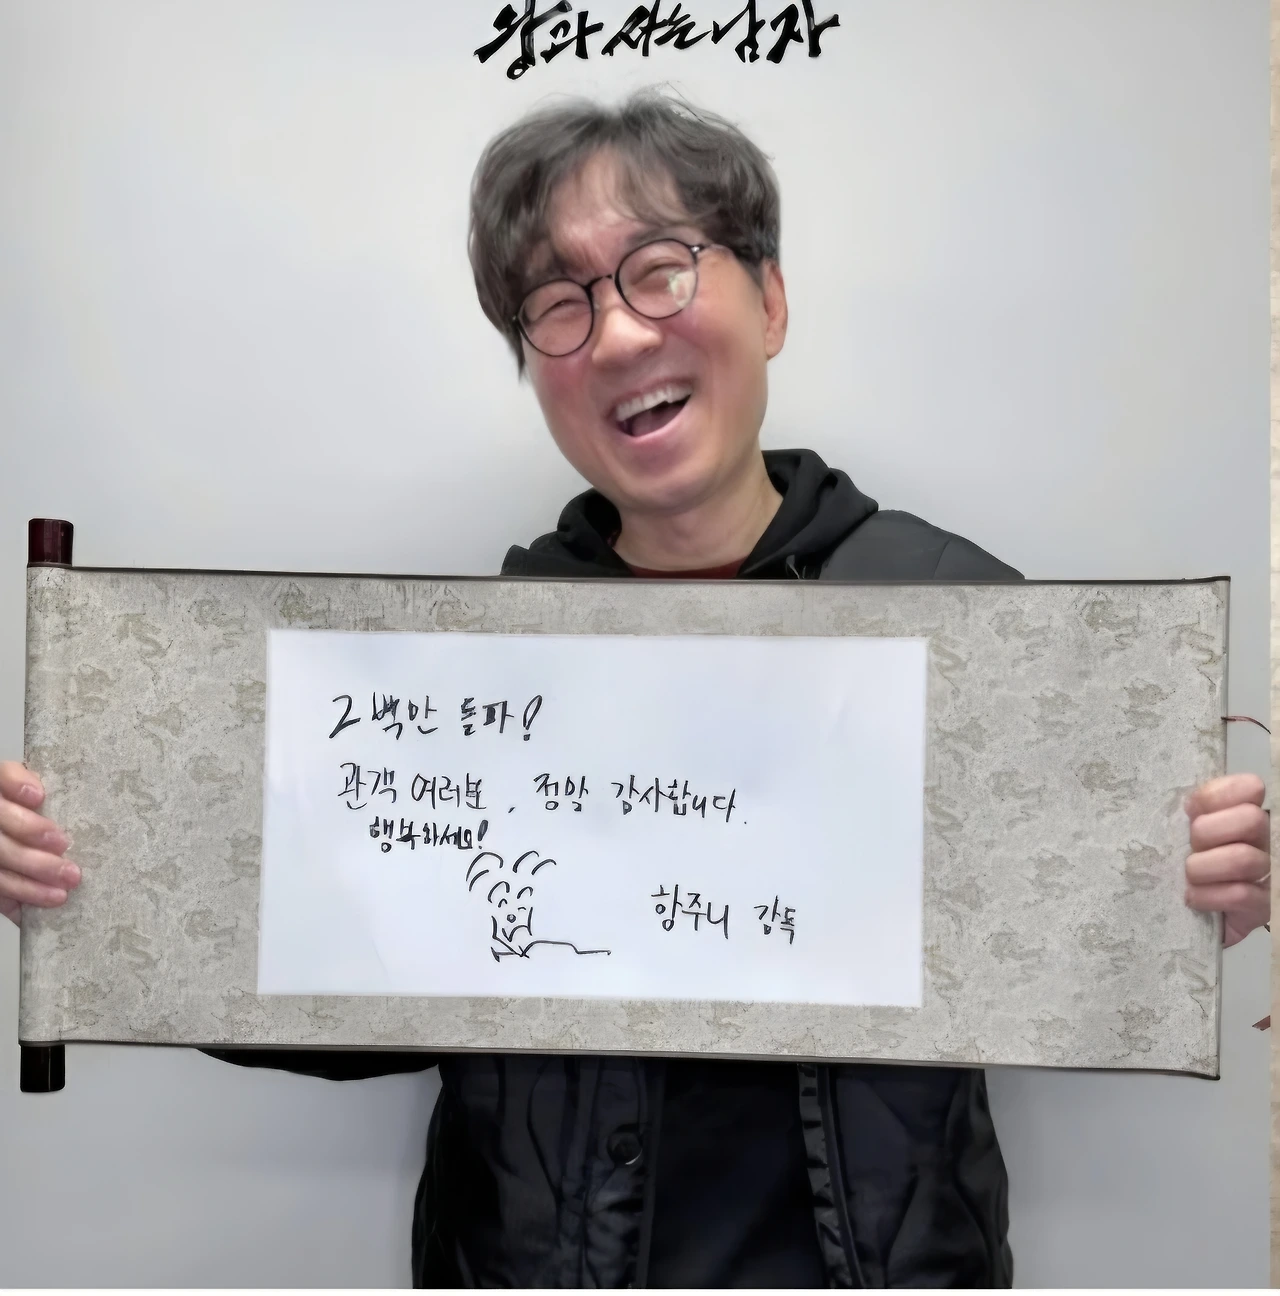 왕과 사는 남자
2백만 돌파!
관객 여러분, 정말 감사합니다.
행복하세요!
항주니 감독